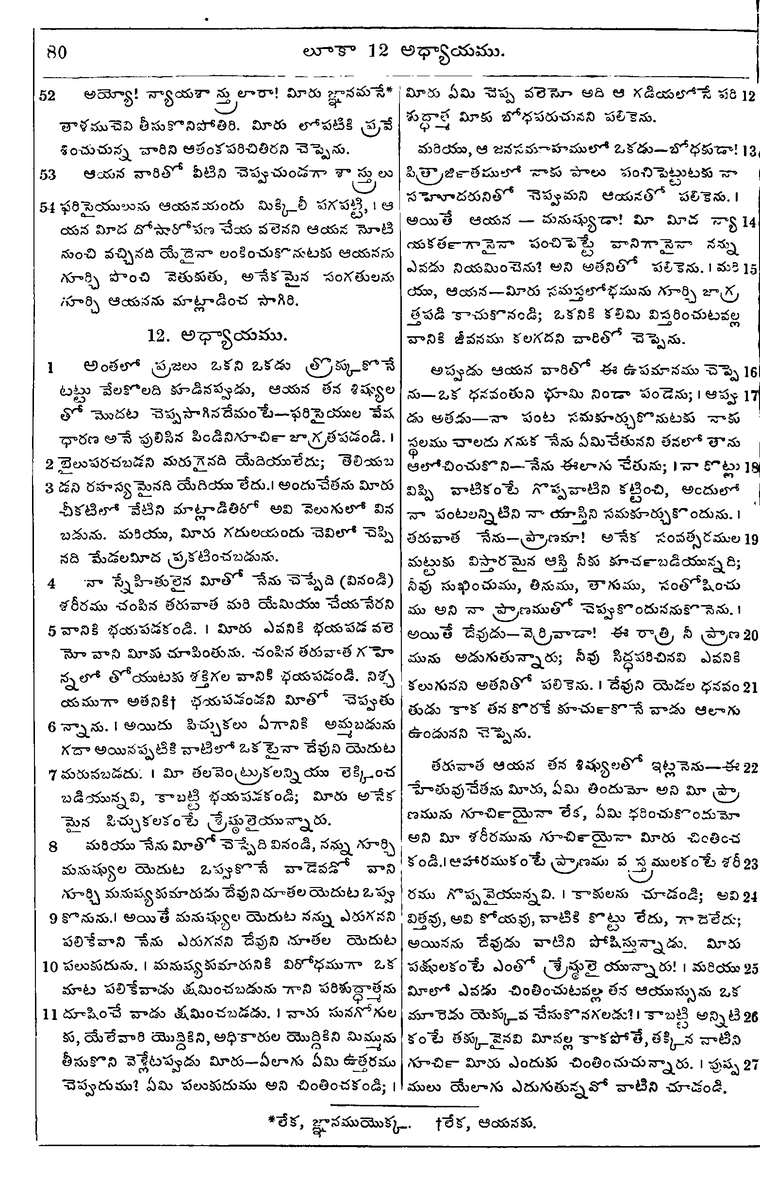 80
లూకా 12 అధ్యాయము.
52 అయ్యో! న్యాయశాస్త్రులారా! మీరు జ్ఞానమనే*
తాళముచెవి తీసుకొనిపోతిరి. మీరు లోపటికి ప్రవే
శించుచున్న వారిని ఆతంకపరిచితిరని చెప్పెను.
53 ఆయన వారితో వీటిని చెప్పుచుండగా శాస్త్రులు
54 ఫరిసైయులును ఆయనయందు మిక్కిలి పగపట్టి, । ఆ
యన మీద దోషారోపణ చేయ వలెనని ఆయన నోటి
నుంచి వచ్చినది యేదైనా లంకించుకొనుటకు ఆయనను
గూర్చి పొంచి వెతుకుతు, అనేకమైన సంగతులను
గూర్చి ఆయనను మాట్లాడించ సాగిరి.
12. అధ్యాయము.
1 అంతలో ప్రజలు ఒకని ఒకడు త్రొక్కుకొనే
టట్టు వేలకొలది కూడినప్పుడు, ఆయన తన శిష్యుల
తో మొదట చెప్పసాగినదేమంటే—ఫరిసైయుల వేష
ధారణ అనే పులిసిన పిండినిగూచిƒ జాగ్రతపడండి. ।
2 బైలుపరచబడని మరుగైనది యేదియులేదు; తెలియబ
3 డని రహస్యమైనది యేదియు లేదు.। అందుచేతను మీరు
చీకటిలో వేటిని మాట్లాడితిరో అవి వెలుగులో విన
బడును. మరియు, మీరు గదులయందు చెవిలో చెప్పి
నది మేడలమీద ప్రకటించబడును.
4 నా స్నేహితులైన మీతో నేను చెప్పేది (వినండి)
శరీరము చంపిన తరువాత మరి యేమియు చేయనేరని
5 వానికి భయపడకండి. । మీరు ఎవనికి భయపడ వలె
నో వాని మీకు చూపింతును. చంపిన తరువాత గహె
న్నలో త్రోయుటకు శక్తిగల వానికి భయపడండి. నిశ్చ
యముగా అతనికి† భయపడండని మీతో చెప్పుతు
6 న్నాను. । అయిదు పిచ్చుకలు ఏగానికి అమ్మబడును
గదా అయినప్పటికి వాటిలో ఒకటైనా దేవుని యెదుట
7 మరువబడదు. । మీ తలవెంట్రుకలన్నియు లెక్కించ
బడియున్నవి, కాబట్టి భయపడకండి; మీరు అనేక
మైన పిచ్చుకలకంటే శ్రేష్ఠులైయున్నారు.
8 మరియు నేను మీతో చెప్పేది వినండి, నన్ను గూర్చి
మనుష్యుల యెదుట ఒప్పుకొనే వాడెవడో వాని
గూర్చి మనుష్యకుమారుడు దేవుని దూతల యెదుట ఒప్పు
9 కొనును.। అయితే మనుష్యుల యెదుట నన్ను ఎరుగనని
పలికేవాని నేను ఎరుగనని దేవుని దూతల యెదుట
10 పలుకుదును. । మనుష్యకుమారునికి విరోధముగా ఒక
మాట పలికేవాడు క్షమించబడును గాని పరిశుద్ధాత్మను
11 దూషించే వాడు క్షమించబడడు. । వారు సునగోగుల
కు, యేలేవారి యొద్దికిని, అధికారుల యొద్దికిని మిమ్మును
తీసుకొని వెళ్లేటప్పుడు మీరు—ఏలాగు ఏమి ఉత్తరము
చెప్పుదుము? ఏమి పలుకుదుము అని చింతించకండి; ।
మీరు ఏమి చెప్ప వలెనో అది ఆ గడియలోనే పరి 12
శుద్ధాత్మ మీకు బోధపరుచునని పలికెను.
మరియు, ఆ జనసమూహములో ఒకడు—బోధకుడా! 13
పిత్రార్జితములో నాకు పాలు పంచిపెట్టుటకు నా
సహోదరునితో చెప్పుమని ఆయనతో పలికెను. ।
అయితే ఆయన — మనుష్యుడా! మీ మీద న్యా 14
యకతƒగానైనా పంచిపెట్టే వానిగానైనా నన్ను
ఎవడు నియమించెను? అని అతనితో పలికెను. । మరి 15
యు, ఆయన—మీరు సమస్తలోభమును గూర్చి జాగ్ర
త్తపడి కాచుకొనండి; ఒకనికి కలిమి విస్తరించుటవల్ల
వానికి జీవనము కలగదని వారితో చెప్పెను.
అప్పుడు ఆయన వారితో ఈ ఉపమానము చెప్పె 16
ను—ఒక ధనవంతుని భూమి నిండా పండెను; । అప్పు 17
డు అతడు—నా పంట సమకూర్చుకొనుటకు నాకు
స్థలము చాలదు గనుక నేను ఏమిచేతునని తనలో తాను
ఆలోచించుకొని—నేను ఈలాగు చేతును; । నా కొట్లు 18
విప్పి వాటికంటే గొప్పవాటిని కట్టించి, అందులో
నా పంటలన్నిటిని నా యాస్తిని సమకూర్చుకొందును. ।
తరువాత నేను—ప్రాణమా! అనేక సంవత్సరముల 19
మట్టుకు విస్తారమైన ఆస్తి నీకు కూచƒబడియున్నది;
నీవు సుఖించుము, తినుము, తాగుము, సంతోషించు
ము అని నా ప్రాణముతో చెప్పుకొందుననుకొనెను. ।
అయితే దేవుడు—వెర్రివాడా! ఈ రాత్రి నీ ప్రాణ 20
మును అడుగుతున్నారు; నీవు సిద్ధపరిచినవి ఎవనికి
కలుగునని అతనితో పలికెను. । దేవుని యెడల ధనవం 21
తుడు కాక తన కొరకే కూచుƒకొనే వాడు ఆలాగు
ఉందునని చెప్పెను.
తరువాత ఆయన తన శిష్యులతో ఇట్లనెను—ఈ 22
హేతువుచేతను మీరు, ఏమి తిందుమో అని మీ ప్రా
ణమును గూచిƒయైనా లేక, ఏమి ధరించుకొందుమో
అని మీ శరీరమును గూచిƒయైనా మీరు చింతించ
కండి.। ఆహారముకంటే ప్రాణము వస్త్రములకంటే శరీ 23
రము గొప్పవైయున్నవి. । కాకులను చూడండి; అవి 24
విత్తవు, అవి కోయవు, వాటికి కొట్టు లేదు, గాదెలేదు;
అయినను దేవుడు వాటిని పోషిస్తున్నాడు. మీరు
పక్షులకంటే ఎంతో శ్రేష్ఠులై యున్నారు! । మరియు 25
మీలో ఎవడు చింతించుటవల్ల తన ఆయుస్సును ఒక
మూరెడు యెక్కువ చేసుకొనగలడు?। కాబట్టి అన్నిటి 26
కంటే తక్కువైనవి మీవల్ల కాకపోతే, తక్కిన వాటిని
గూచిƒ మీరు ఎందుకు చింతించుచున్నారు. । పుష్ప 27
ములు యేలాగు ఎదుగుతున్నవో వాటిని చూడండి.
*లేక, జ్ఞానముయొక్క. †లేక, ఆయనకు.